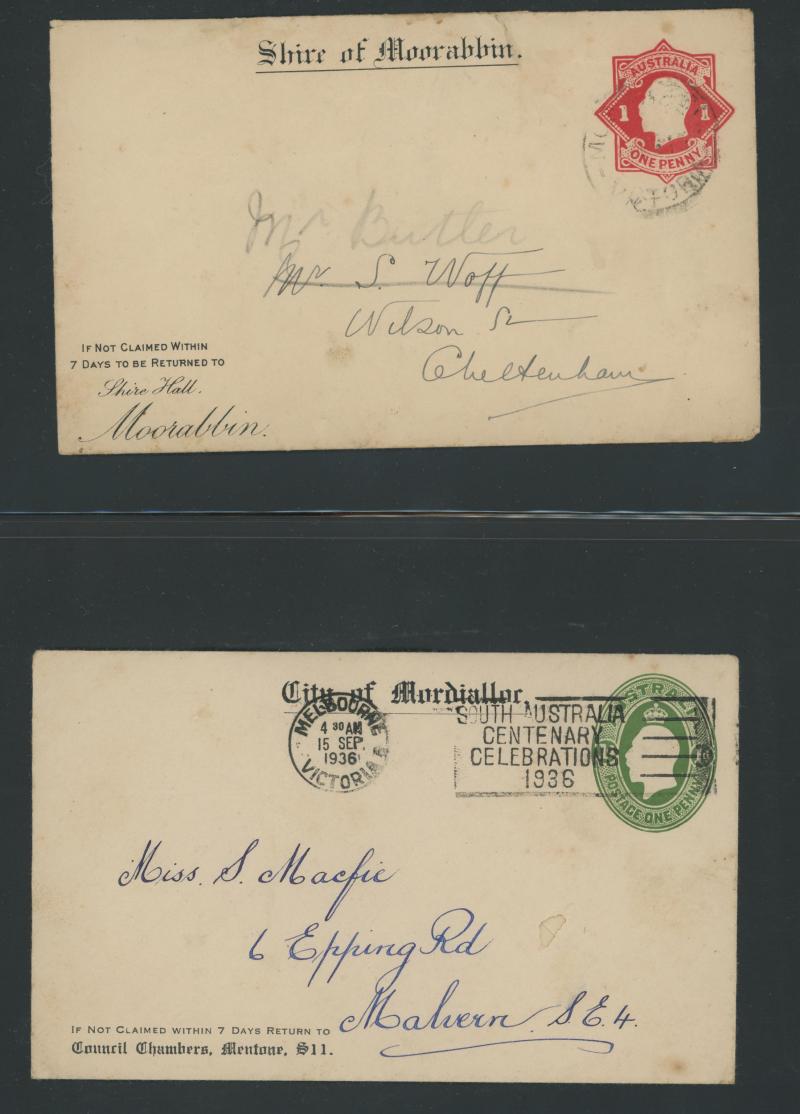 Shire of Moorabbin.
AUSTRALIA
1 1
ONE PENNY
VICTORIA
Mr Butler
Mr. S. Woff
Wilson St
Cheltenham
IF NOT CLAIMED WITHIN
7 DAYS TO BE RETURNED TO
Shire Hall.
Moorabbin.
City of Mordialloc.
AUSTRALIA
POSTAGE ONE PENNY
MELBOURNE
4 30 AM
15 SEP.
1936
VICTORIA
SOUTH AUSTRALIA
CENTENARY
CELEBRATIONS
1936
Miss. S. Macfie
6 Epping Rd
Malvern. S.E.4.
IF NOT CLAIMED WITHIN 7 DAYS RETURN TO
Council Chambers, Mentone, S11.